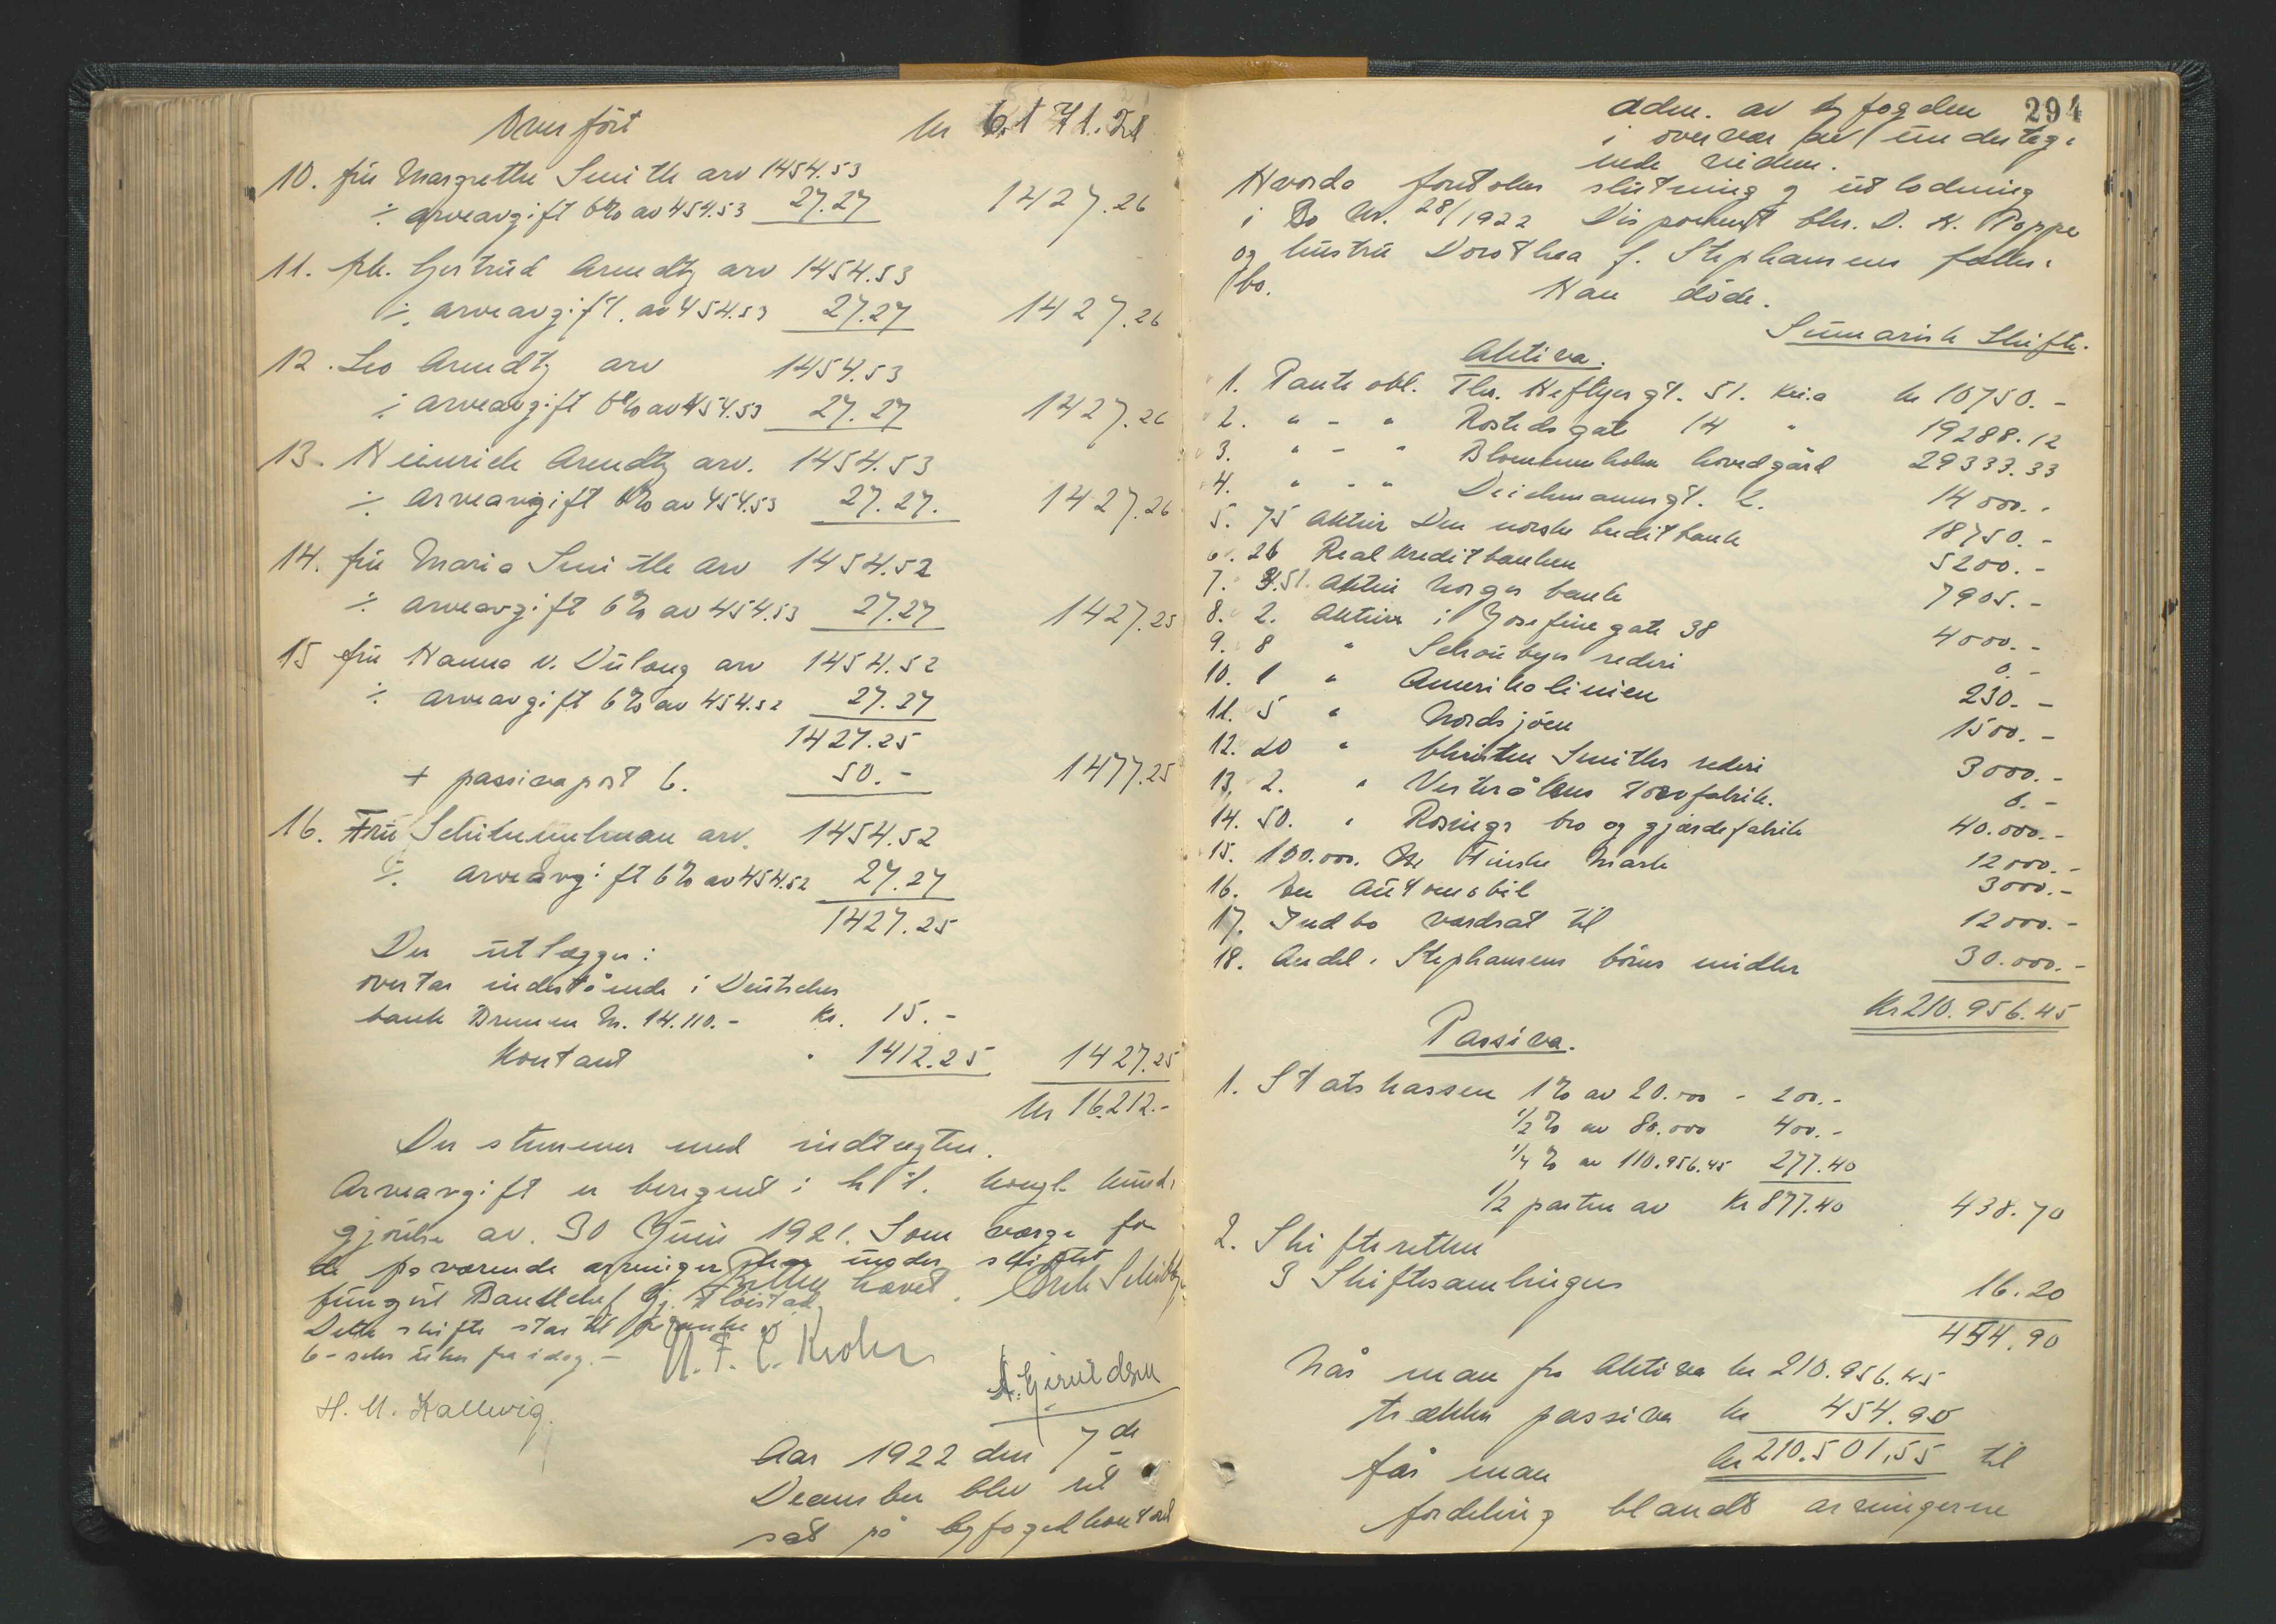 Overført kr 6171.21
10. frue Margrethe Smith arv 1454.53
÷ arveavgift 6% av 454.53 27.27 1427.26
11. frk. Gertrud Arendtz arv 1454.53
÷ arveavgift. av 454.53 27.27 1427.26
12. Leo Arendtz arv 1454.53
÷ arveavgift 6% av 454.53 27.27 1427.26
13. Heinrich Arendtz arv. 1454.53
÷ arveavgift 6% av 454.53 27.27. 1427.26
14. frue Maria Smith arv 1454.52
÷ arveavgift 6% av 454.53 27.27 1427.25
15 frue Hanna v. Dulong arv 1454.52
÷ arveavgift 6% av 454.52 27.27
1427.25
+ passivapost 6. 50.- 1477.25
16. Fru Schimmelman arv. 1454.52
÷ arveavgift 6% av 454.52 27.27
1427.25
Der utlægges:
overtar indestående i Deutsches
bank Bremen M. 14.110.- Kr. 15.-
Kontant " 1412.25 1427.25
Kr 16.212.-
Der stemmer med indtægten.
Arveavgift er beregnet i h.t. kongl. kund-
gjørelse av 30 Juni 1921. Som værge for
de fraværende arvinger har under skiftet
fungert Bankchef Hj. Fløistad.
Retten hævet. Erik Schibbye
Dette skifte står til påanke i
6 - seks uker fra idag.-
N. F. C. Krohn
A. Gjeruldsen
H. M. Kallevig.
Aar 1922 den 7de
December blev ret
sat på byfogedkontoret
294
adm. av byfogden
i overvær av underteg-
nede vidner.
Hvorda foretokes slutning og utlodning
i Bo Nr. 28/1922 Disponent Chr. D. H. Poppe
og hustru Dorothea f. Stephansens fælles-
bo. Han døde.
Sumarisk Skifte.
Aktiva.
1. Panteobl. Ths. Heftyes gt. 51. Kr.a kr 10750.-
2. " - " Rosteds gate 14 " 19288.12
3. " - " Blommenholm hovedgård 29333.33
4. " - " Deichmannsgt. 2. 14000.-
5. 75 Aktier Den norske Creditbank 18750.-
6. 26 Realkreditbanken 5200.-
7. 51 Aktier Norges bank 7905.-
8. 2. Aktier i Josefinegate 38 4000.-
9. 8 " Schoubyes rederi 0.-
10. 1 " Amerikalinien 230.-
11. 5 " Nordsjøen 1500.-
12. 20 " Christen Smiths rederi 3000.-
13. 2. " Vesterålens torvfabrik. 0.-
14. 50. " Rosings bro og gjærdefabrik 40.000.-
15. 100.000. Finske Mark 12000.-
16. En Automobil 3000.-
17. Indbo værdsat til 12000.-
18. Andel i Stephansens børns midler 30.000.-
Kr 210.956.45
Passiva.
1. Statskassen 1% av 20.000 - 200.-
1/2% av 80.000 400.-
1/4% av 110.956.45 277.40
1/2 parten av Kr 877.40 438.70
2. Skifteretten
3 Skiftesamlinger 16.20
454.90
Når man fra Aktiva kr 210.956.45
trækker passiva kr 454.90
får man kr 210.501,55 til
fordeling blandt arvingerne